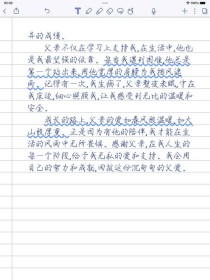 异的成绩。
父亲不仅在学习上支持我,在生活中,他也
是我最坚强的依靠。每当我遇到困难,他总是
第一个站出来,用他宽厚的肩膀为我挡风遮
雨。记得有一次,我生病了,父亲整夜未眠,守在
我床边,细心照顾我,让我感受到无比的温暖和
安全。
成长的路上,父亲的爱如春风般温暖,如大
山般厚重。正是因为有他的陪伴,我才能在生
活的风雨中无所畏惧。感谢父亲,在我人生的
每一个阶段,给予我无私的爱和支持。我会用
自己的努力和成就,回报这份沉甸甸的父爱。